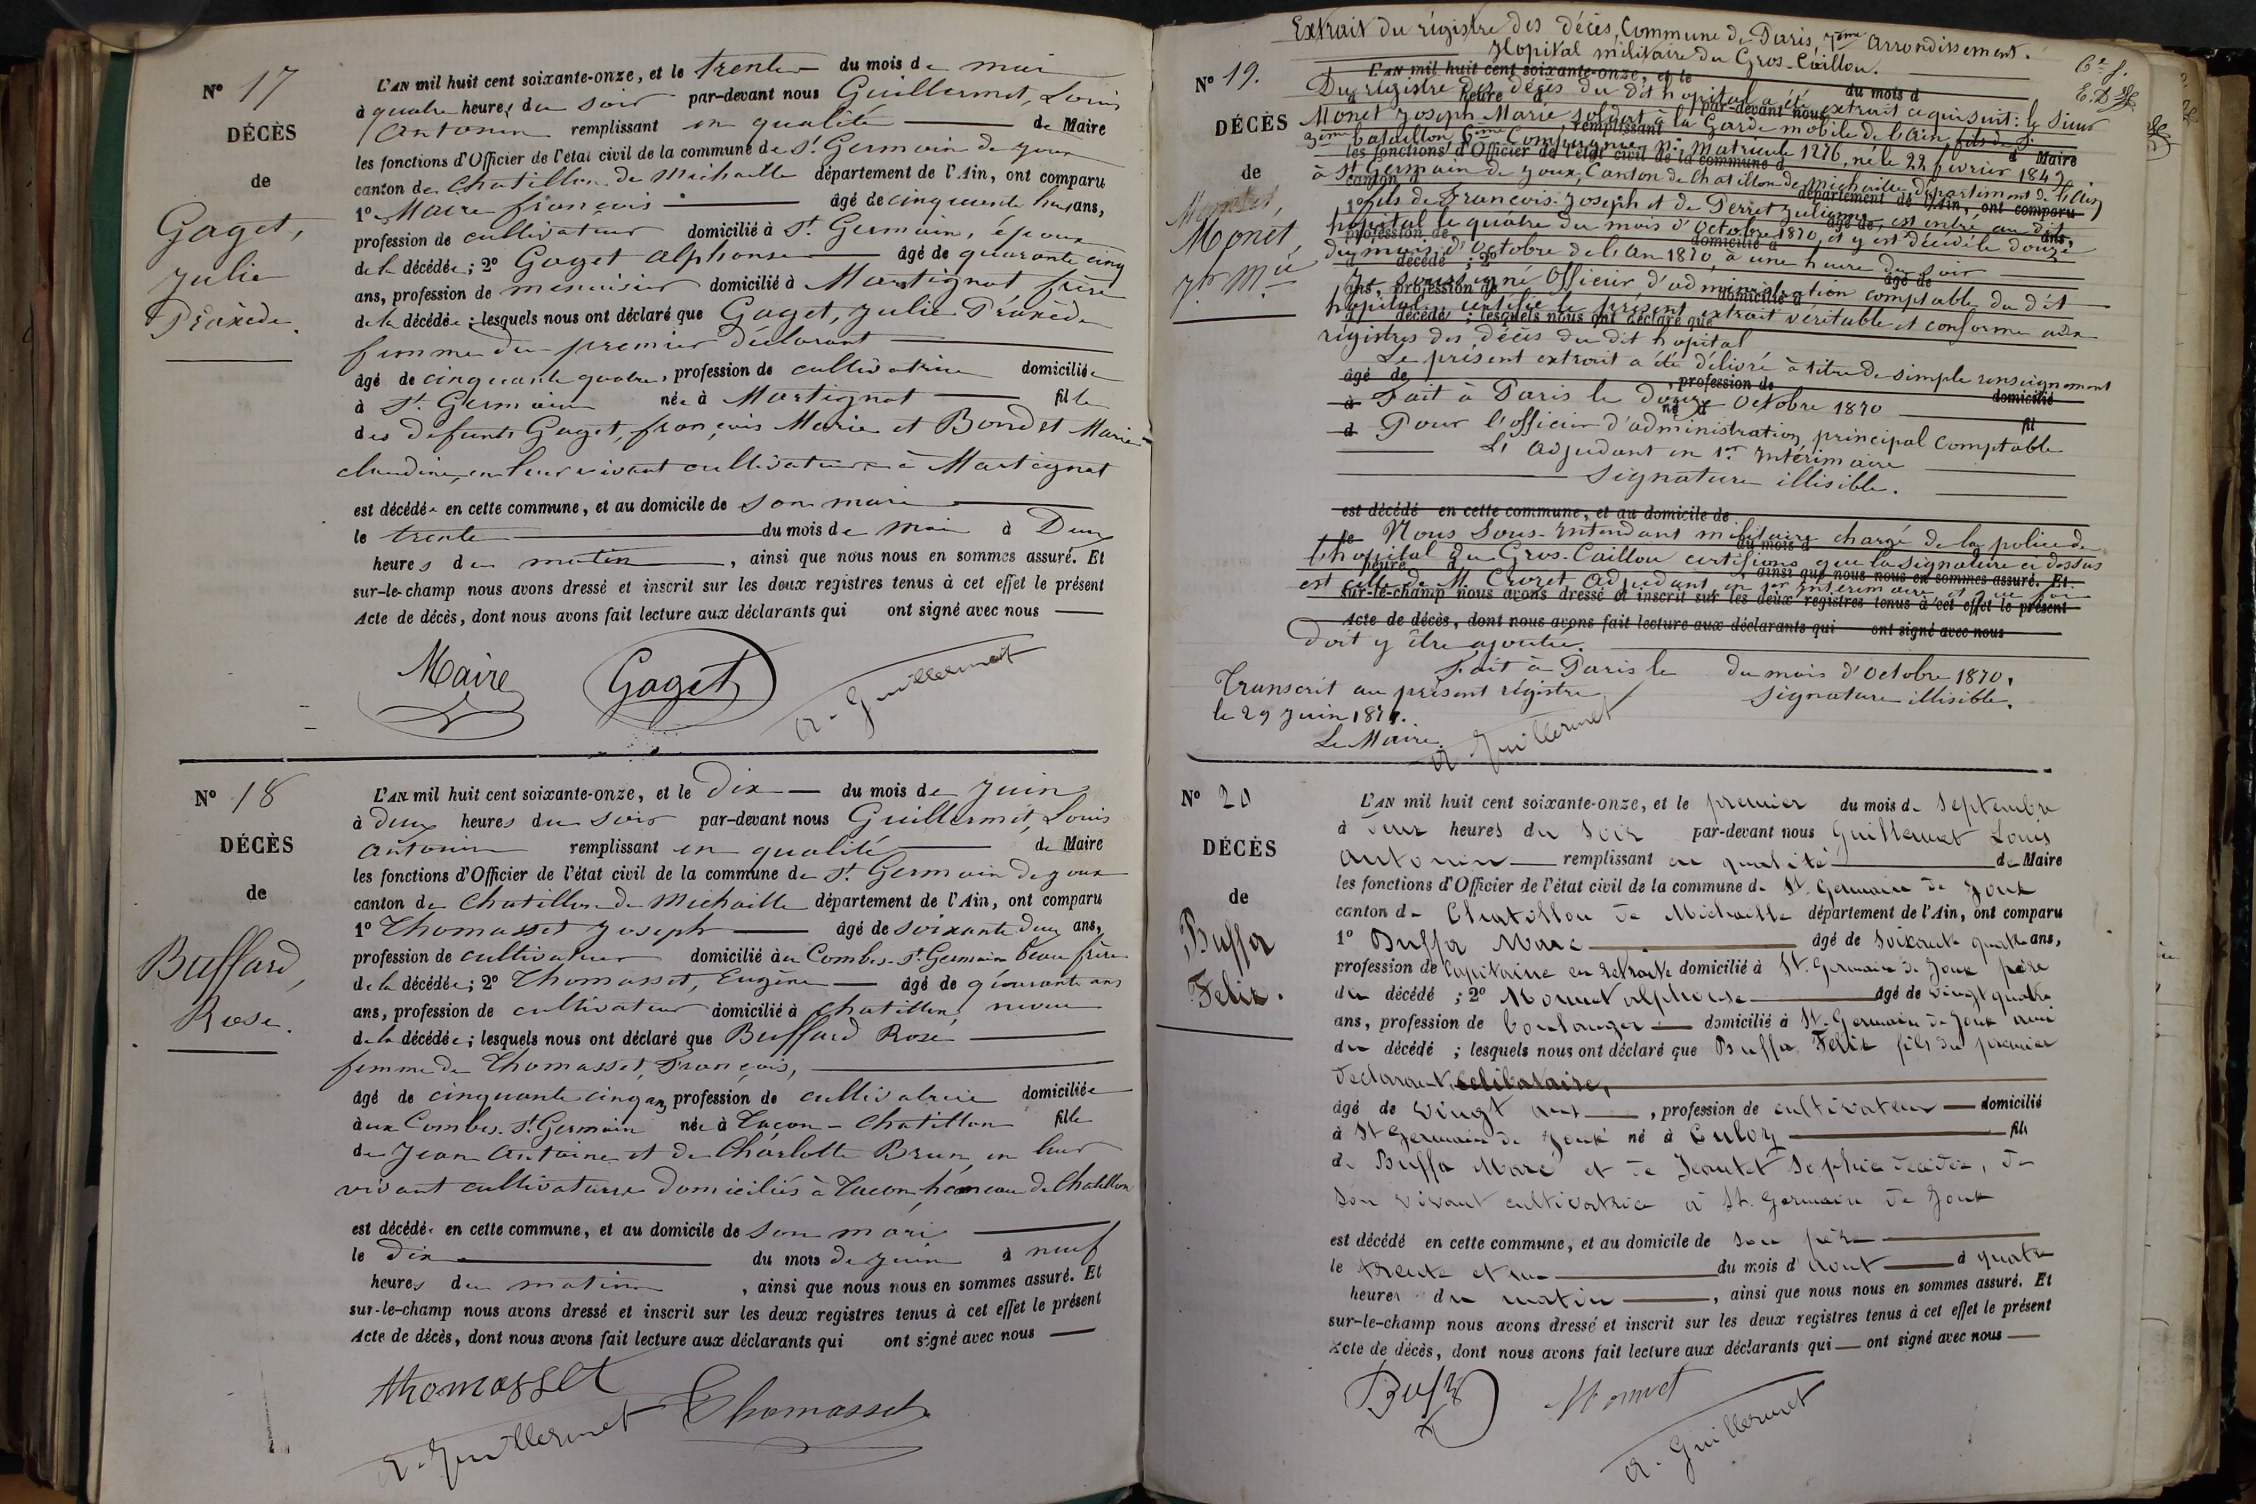 N° 17
DÉCÈS
de
Gaget,
Julie
Praxède.
L'AN mil huit cent soixante-onze, et le trente du mois de mai
à quatre heures du soir par-devant nous Guillermet, Louis
Antonin remplissant en qualité de Maire
les fonctions d'Officier de l'état civil de la commune de St Germain de Joux
canton de Chatillon de Michaille département de l'Ain, ont comparu
1° Maire françois âgé de cinquante huit ans,
profession de cultivateur domicilié à St Germain, époux
de la décédée; 2° Gaget Alphonse âgé de quarante cinq
ans, profession de menuisier domicilié à Martignat frère
de la décédée; lesquels nous ont déclaré que Gaget, Julie Praxède
femme du premier déclarant
âgé de cinquante quatre, profession de cultivatrice domiciliée
à St Germain née à Martignat fille
des défunts Gaget, françois Marie et Bondet Marie
claudine, en leur vivant cultivateurs à Martignat
est décédée en cette commune, et au domicile de son mari
le trente du mois de Mai à Deux
heures du matin, ainsi que nous nous en sommes assuré. Et
sur-le-champ nous avons dressé et inscrit sur les deux registres tenus à cet effet le présent
Acte de décès, dont nous avons fait lecture aux déclarants qui ont signé avec nous
Maire Gaget A. Guillermet
N° 18
DÉCÈS
de
Buffard,
Rose.
L'AN mil huit cent soixante-onze, et le Dix du mois de Juin
à deux heures du soir par-devant nous Guillermet, Louis
Antonin remplissant en qualité de Maire
les fonctions d'Officier de l'état civil de la commune de St Germain de Joux
canton de Chatillon de Michaille département de l'Ain, ont comparu
1° Thomasset Joseph âgé de soixante deux ans,
profession de cultivateur domicilié au Combes-St Germain beau frère
de la décédée; 2° Thomasset, Eugène âgé de quarante ans
ans, profession de cultivateur domicilié à Chatillon, neveu
de la décédée; lesquels nous ont déclaré que Buffard Rose
femme de Thomasset, François,
âgé de cinquante cinq ans, profession de cultivatrice domiciliée
aux Combes-St Germain née à Tacon-Chatillon fille
de Jean Antoine et de Charlotte Brun, en leur
vivant cultivateurs domiciliés à Tacon, hameau de Chatillon
est décédée en cette commune, et au domicile de son mari
le dix du mois de juin à neuf
heures du matin, ainsi que nous nous en sommes assuré. Et
sur-le-champ nous avons dressé et inscrit sur les deux registres tenus à cet effet le présent
Acte de décès, dont nous avons fait lecture aux déclarants qui ont signé avec nous
thomasset
A. Guillermet Thomasset
Extrait du régistre des décès, Commune de Paris, 7ème Arrondissement.
Hopital militaire du Gros-Caillou.
N° 19.
DÉCÈS
de
Monet,
Jh Mie
L'AN mil huit cent soixante-onze, et le du mois d
Du régistre des décès du dit hopital a été extrait ce qui suit: le Sieur
à heure d par-devant nous
Monet Joseph Marie soldat à la Garde mobile de l'Ain,
remplissant d Maire
3ème bataillon, 6ème Compagnie, N° Matricule 1276, né le 22 février 1849
les fonctions d'Officier de l'état civil de la commune d
à St Germain de Joux, Canton de Chatillon de Michaille, département de l'Ain
canton d département de l'Ain, ont comparu
1° fils de François-Joseph et de Perret Julienne, est entré au dit
âgé de ans,
hopital le quatre du mois d'Octobre 1870, et y est décédé le douze
profession de domicilié à
du mois d'Octobre de l'an 1870, à une heure du soir
d décédé ; 2° âgé de
Je soussigné Officier d'administration comptable du dit
ans, profession de domicilié à
hopital, certifie le présent extrait véritable et conforme aux
d décédé ; lesquels nous ont déclaré que
régistres des décès du dit hopital
Le présent extrait a été délivré à titre de simple renseignement
âgé de , profession de domicilié
à Fait à Paris le douze Octobre 1870
né à fil
d Pour l'officier d'administration principal Comptable
L'Adjudant en 1er Intérimaire
Signature illisible.
est décédé en cette commune, et au domicile de
le Nous Sous-Intendant militaire chargé de la police de
du mois d
l'hopital du Gros-Caillou certifions que la signature ci dessus
heure d , ainsi que nous nous en sommes assuré. Et
est celle de M. Crozet Adjudant en 1er Intérimaire, et que foi
sur-le-champ nous avons dressé et inscrit sur les deux registres tenus à cet effet le présent
Acte de décès, dont nous avons fait lecture aux déclarants qui ont signé avec nous
doit y être ajoutée.
Fait à Paris le du mois d'Octobre 1870.
Transcrit au présent régistre signature illisible.
le 29 Juin 1871.
Le Maire
A. Guillermet
N° 20
DÉCÈS
de
Buffa
Felix.
L'AN mil huit cent soixante-onze, et le premier du mois de Septembre
à deux heures du soir par-devant nous Guillermet Louis
Antonin remplissant en qualité de Maire
les fonctions d'Officier de l'état civil de la commune de St. Germain de Joux
canton de Chatillon de Michaille département de l'Ain, ont comparu
1° Buffa Marc âgé de soixante quatre ans,
profession de Capitaine en retraite domicilié à St. Germain de Joux père
du décédé ; 2° Monnet alphonse âgé de vingt quatre
ans, profession de boulanger domicilié à St. Germain de Joux ami
du décédé ; lesquels nous ont déclaré que Buffa Felix fils du premier
declarant, celibataire,
âgé de vingt ans, profession de cultivateur domicilié
à St Germain de Joux né à Culoz fils
de Buffa Marc et de Jeantet Sophie decedée, de
son vivant cultivatrice à St. Germain de Joux
est décédé en cette commune, et au domicile de son père
le trente et un du mois d'Aout à quatre
heures du matin, ainsi que nous nous en sommes assuré. Et
sur-le-champ nous avons dressé et inscrit sur les deux registres tenus à cet effet le présent
Acte de décès, dont nous avons fait lecture aux déclarants qui ont signé avec nous
Buffa Monnet
A. Guillermet